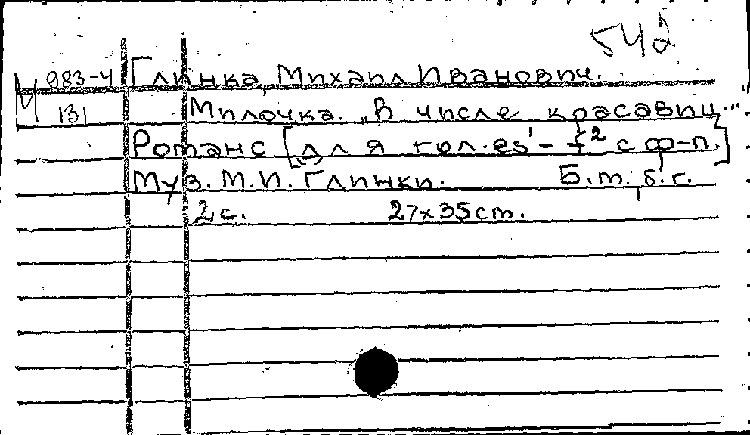 542
983-4 Глинка, Михаил Иванович.
131 Милочка. „В числе красавиц..."
Романс [для гол. es¹-f² с ф-п.]
Муз. М.И. Глинки. Б.м., б.г.
2 с. 27x35 cm.